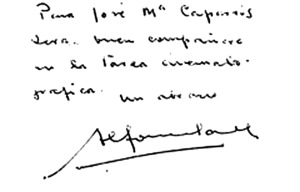 Para José Mª Caparrós
Lera, buen compañero
en la tarea cinemato-
gráfica.
un abrazo